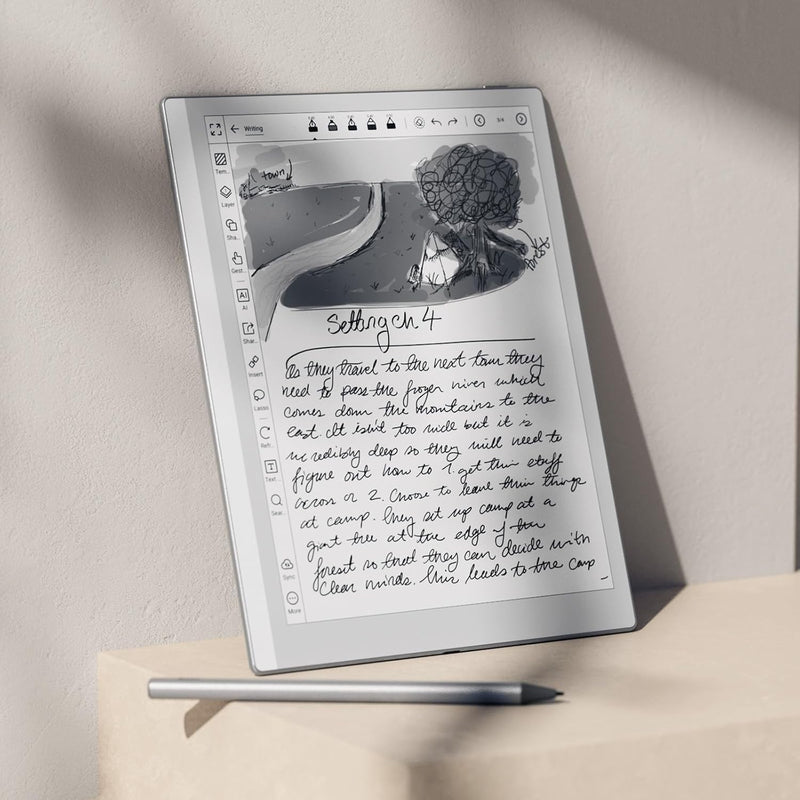 Writing
3/4
Tem..
Layer
Sha..
Gest..
AI
AI
Shar..
Insert
Lasso
Refr..
Text
Sear..
Sync
More
town
forest
Setting ch 4
As they travel to the next town they
need to pass the frozen river which
comes down the mountains to the
east. It isn't too wide but it is
incredibly deep so they will need to
figure out how to 1. get their stuff
across or 2. Choose to leave their things
at camp. They set up camp at a
giant tree at the edge of the
forest so that they can decide with
clear minds. This leads to the camp